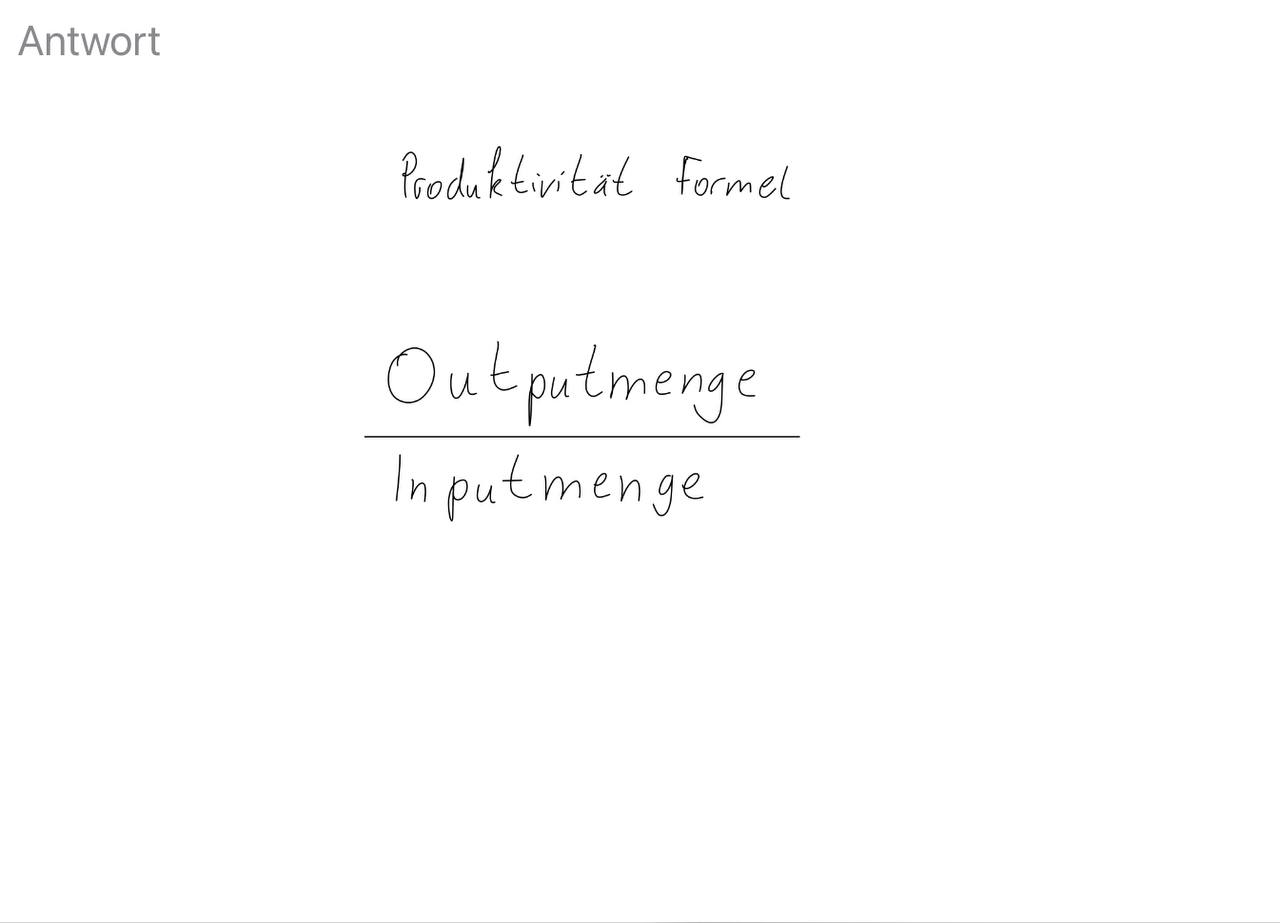 Antwort
Produktivität Formel
Outputmenge
Inputmenge